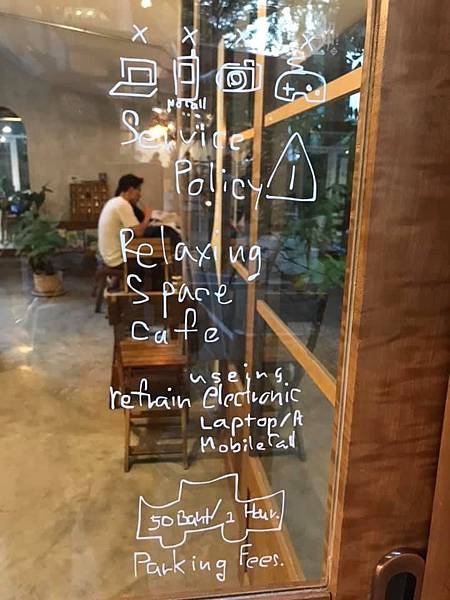 x x x x
No call
Service
Policy !
Relaxing
Space
cafe
useing.
refrain Electronic
Laptop/A
Mobile call
50 Baht/1 Hour.
Parking Fees.